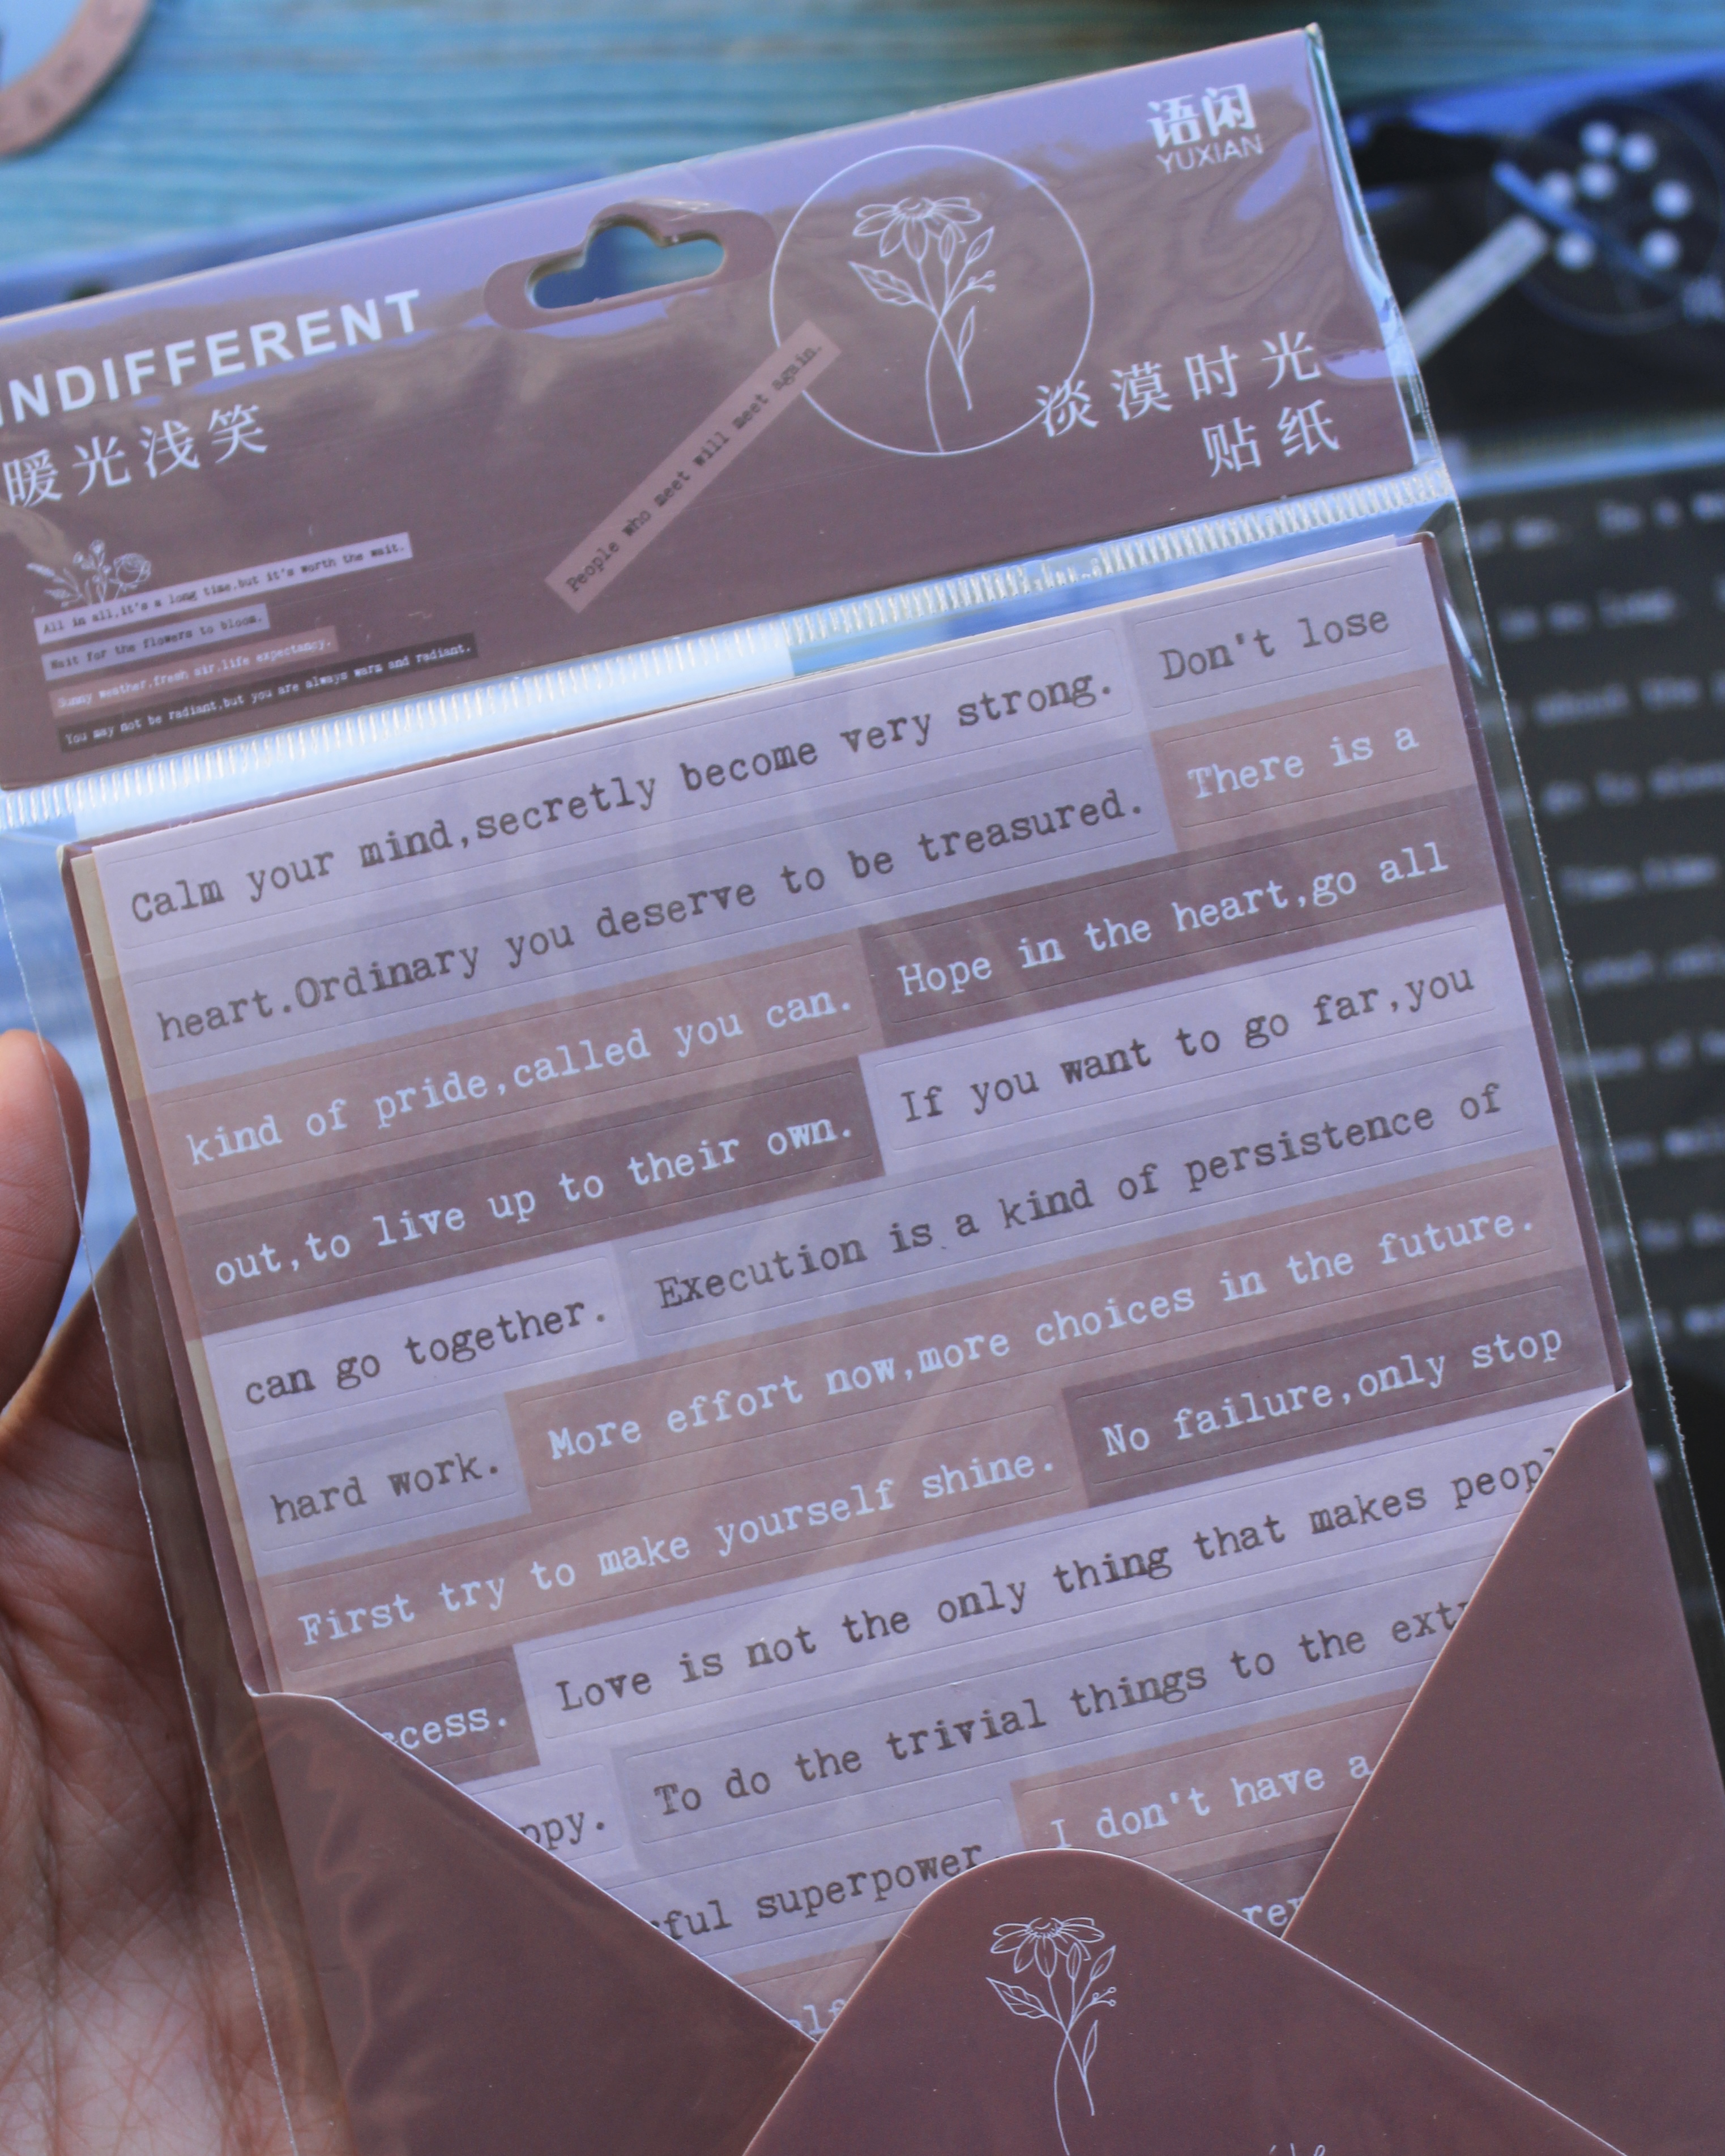 语闲
YUXIAN
INDIFFERENT
暖光浅笑
淡漠时光
贴纸
People who meet will meet again.
All in all,it's a long time,but it's worth the wait.
Wait for the flowers to bloom.
Sunny weather,fresh air,life expectancy.
You may not be radiant,but you are always warm and radiant.
Calm your mind,secretly become very strong. Don't lose
heart.Ordinary you deserve to be treasured. There is a
kind of pride,called you can. Hope in the heart,go all
out,to live up to their own. If you want to go far,you
can go together. Execution is a kind of persistence of
hard work. More effort now,more choices in the future.
First try to make yourself shine. No failure,only stop
ccess. Love is not the only thing that makes peopl
ppy. To do the trivial things to the ext
ful superpower. I don't have a